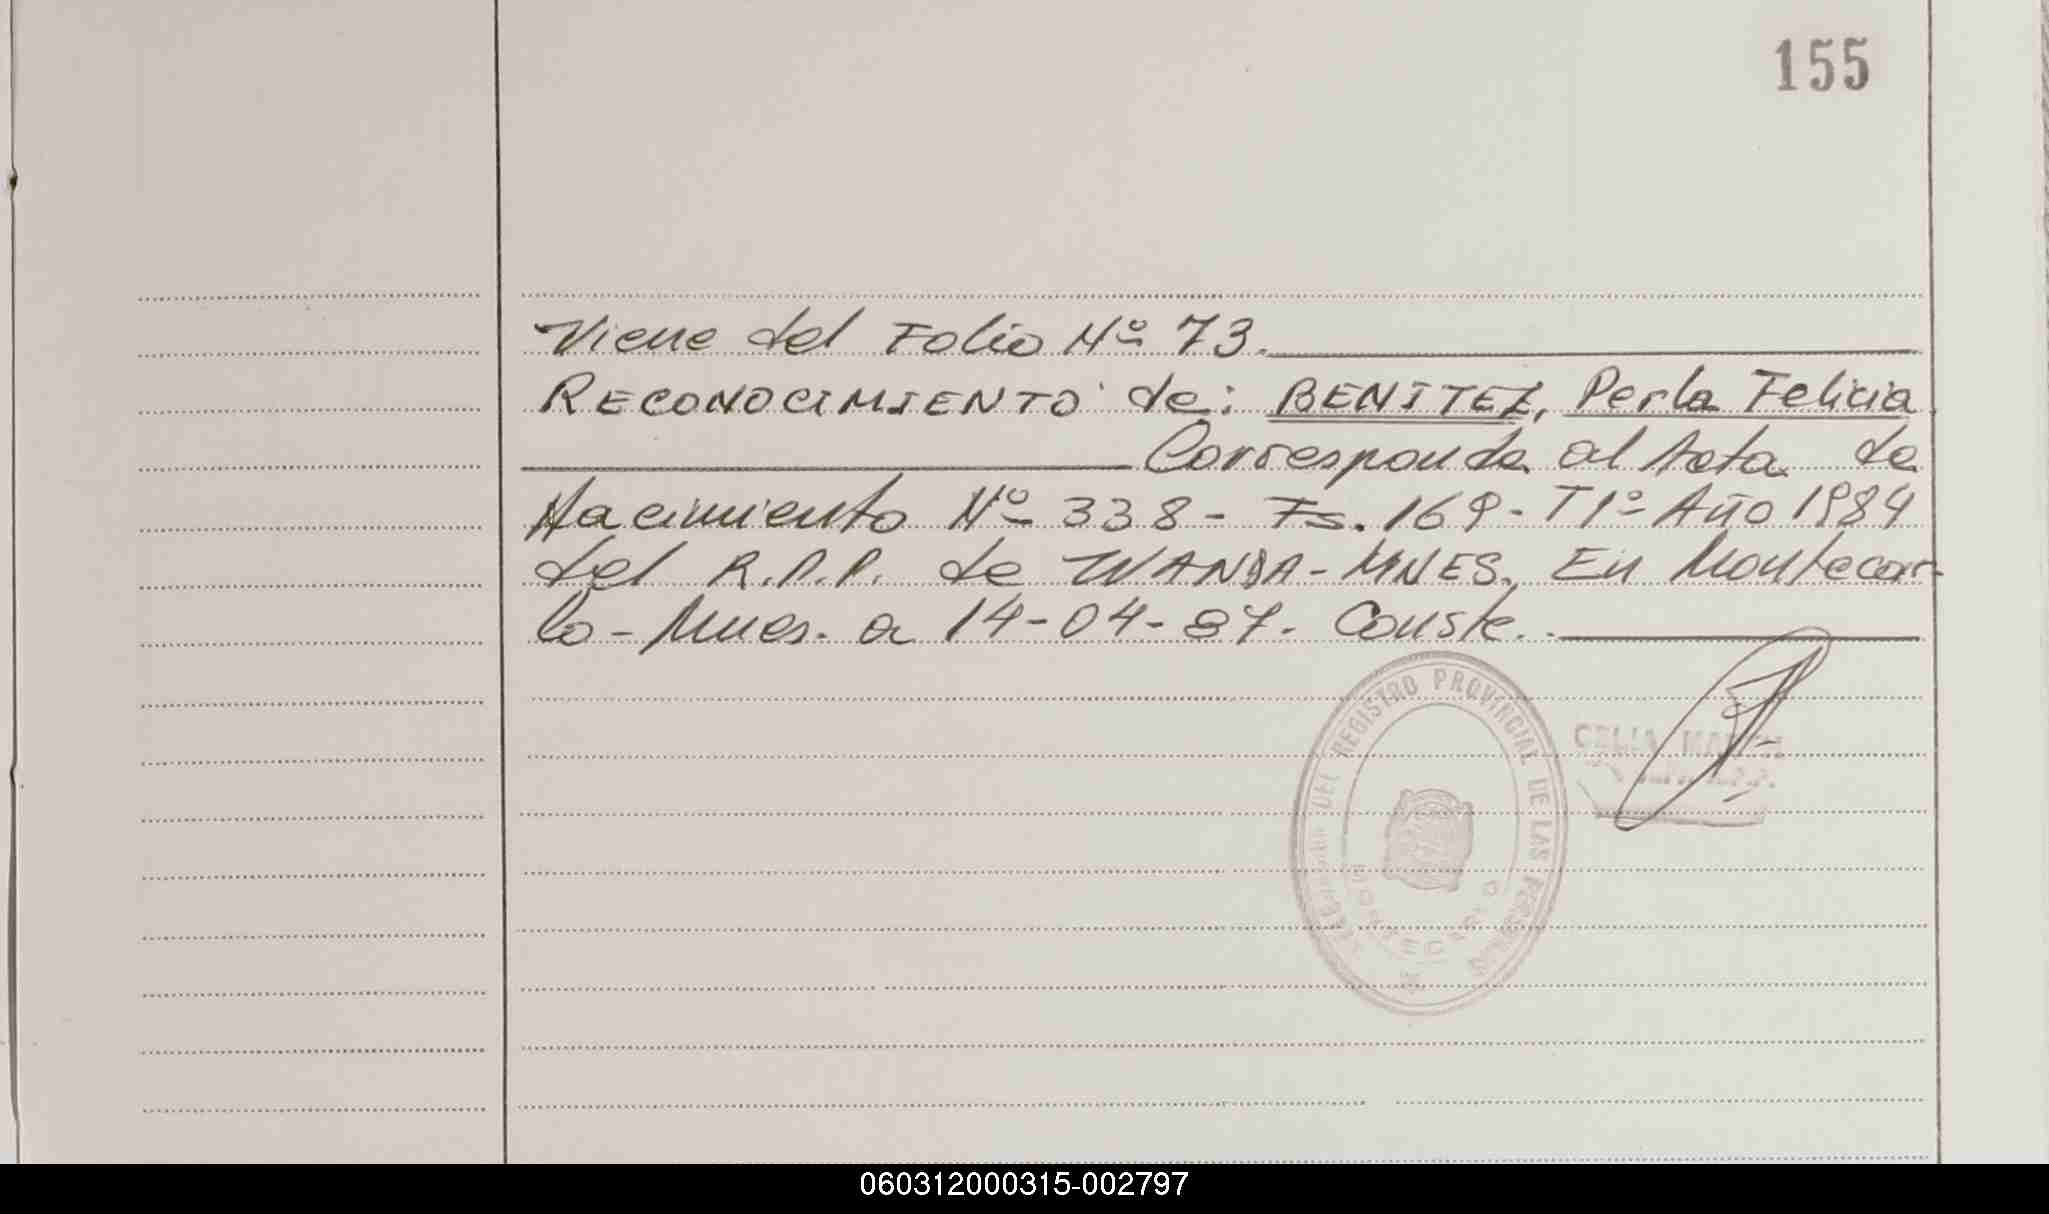 155
Viene del Folio Nº 73.
RECONOCIMIENTO de: BENITEZ, Perla Felicia
Corresponde al Acta de
Nacimiento Nº 338- Fs. 169- T1º Año 1984
del R.P.P. de WANDA-MNES. En Montecar-
lo-Mnes. a 14-04-87. Conste.
DEL REGISTRO PROVINCIAL DE LAS PERSONAS
MONTECARLO
CELIA
060312000315-002797